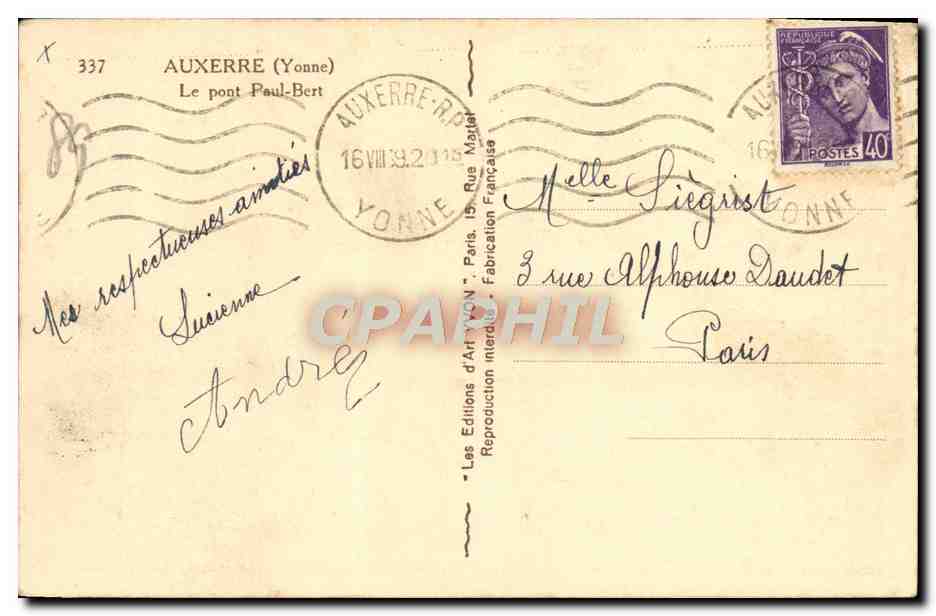 337 AUXERRE (Yonne)
Le pont Paul-Bert
AUXERRE-R.P.
16 VIII 39.20 15
YONNE
Mes respectueuses amitiés
Lucienne
André
"Les Editions d'Art YVON", Paris, 15, Rue Martel
Reproduction interdite. Fabrication Française
REPUBLIQUE FRANÇAISE
POSTES 40c
YONNE
Melle Siègrist
3 rue Alphonse Daudet
Paris
CPAPHIL